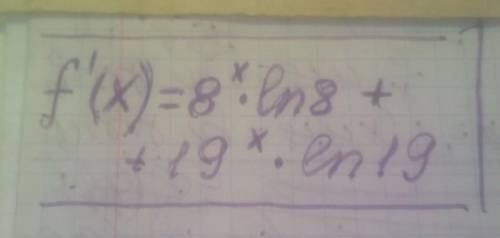 f'(x)=8^x·ln8+
+19^x·ln19